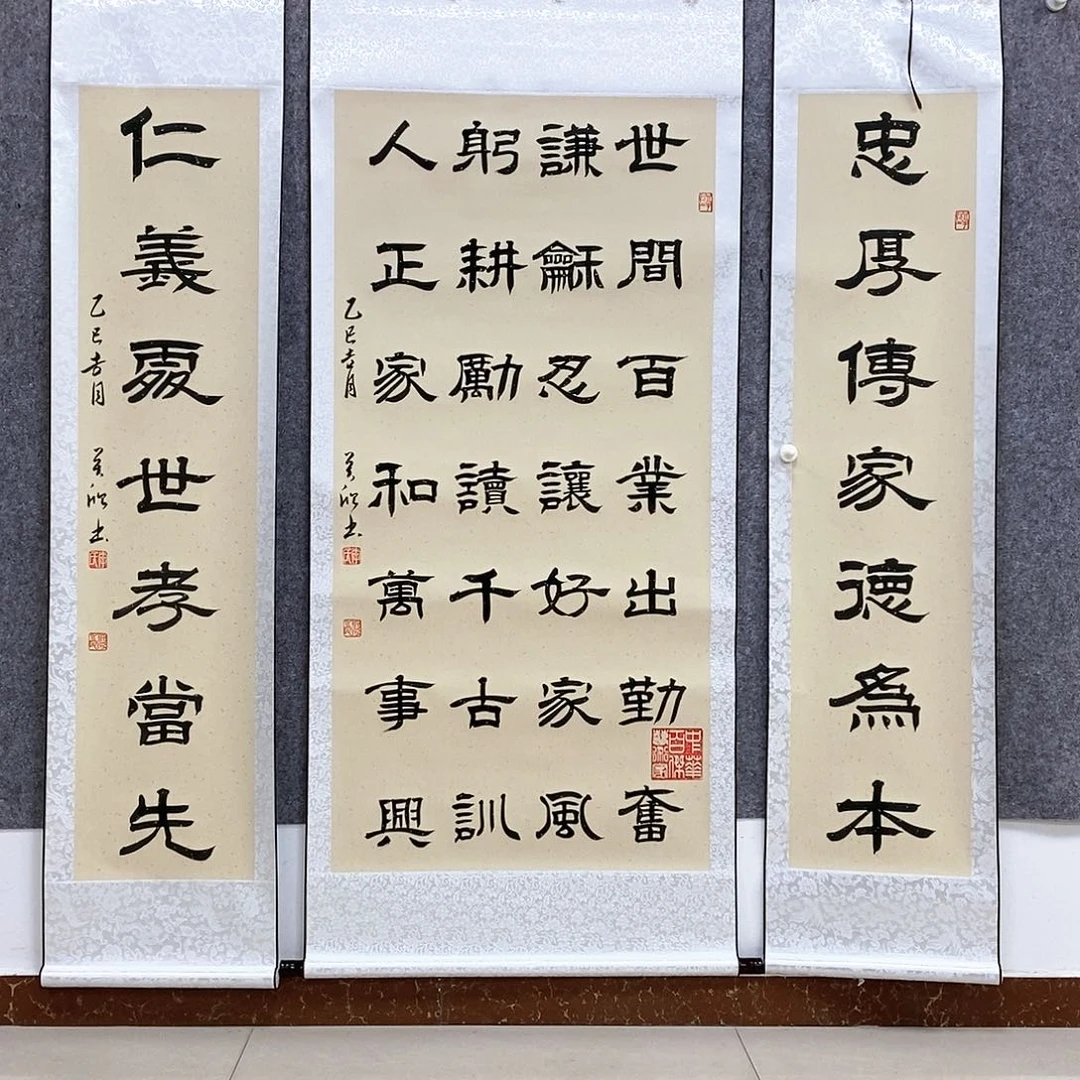 忠厚傳家德為本
世間百業出勤奮
謙龢忍讓好家風
躬耕勵讀千古訓
人正家和萬事興
乙巳吉月
書
仁義處世孝當先
乙巳吉月
書